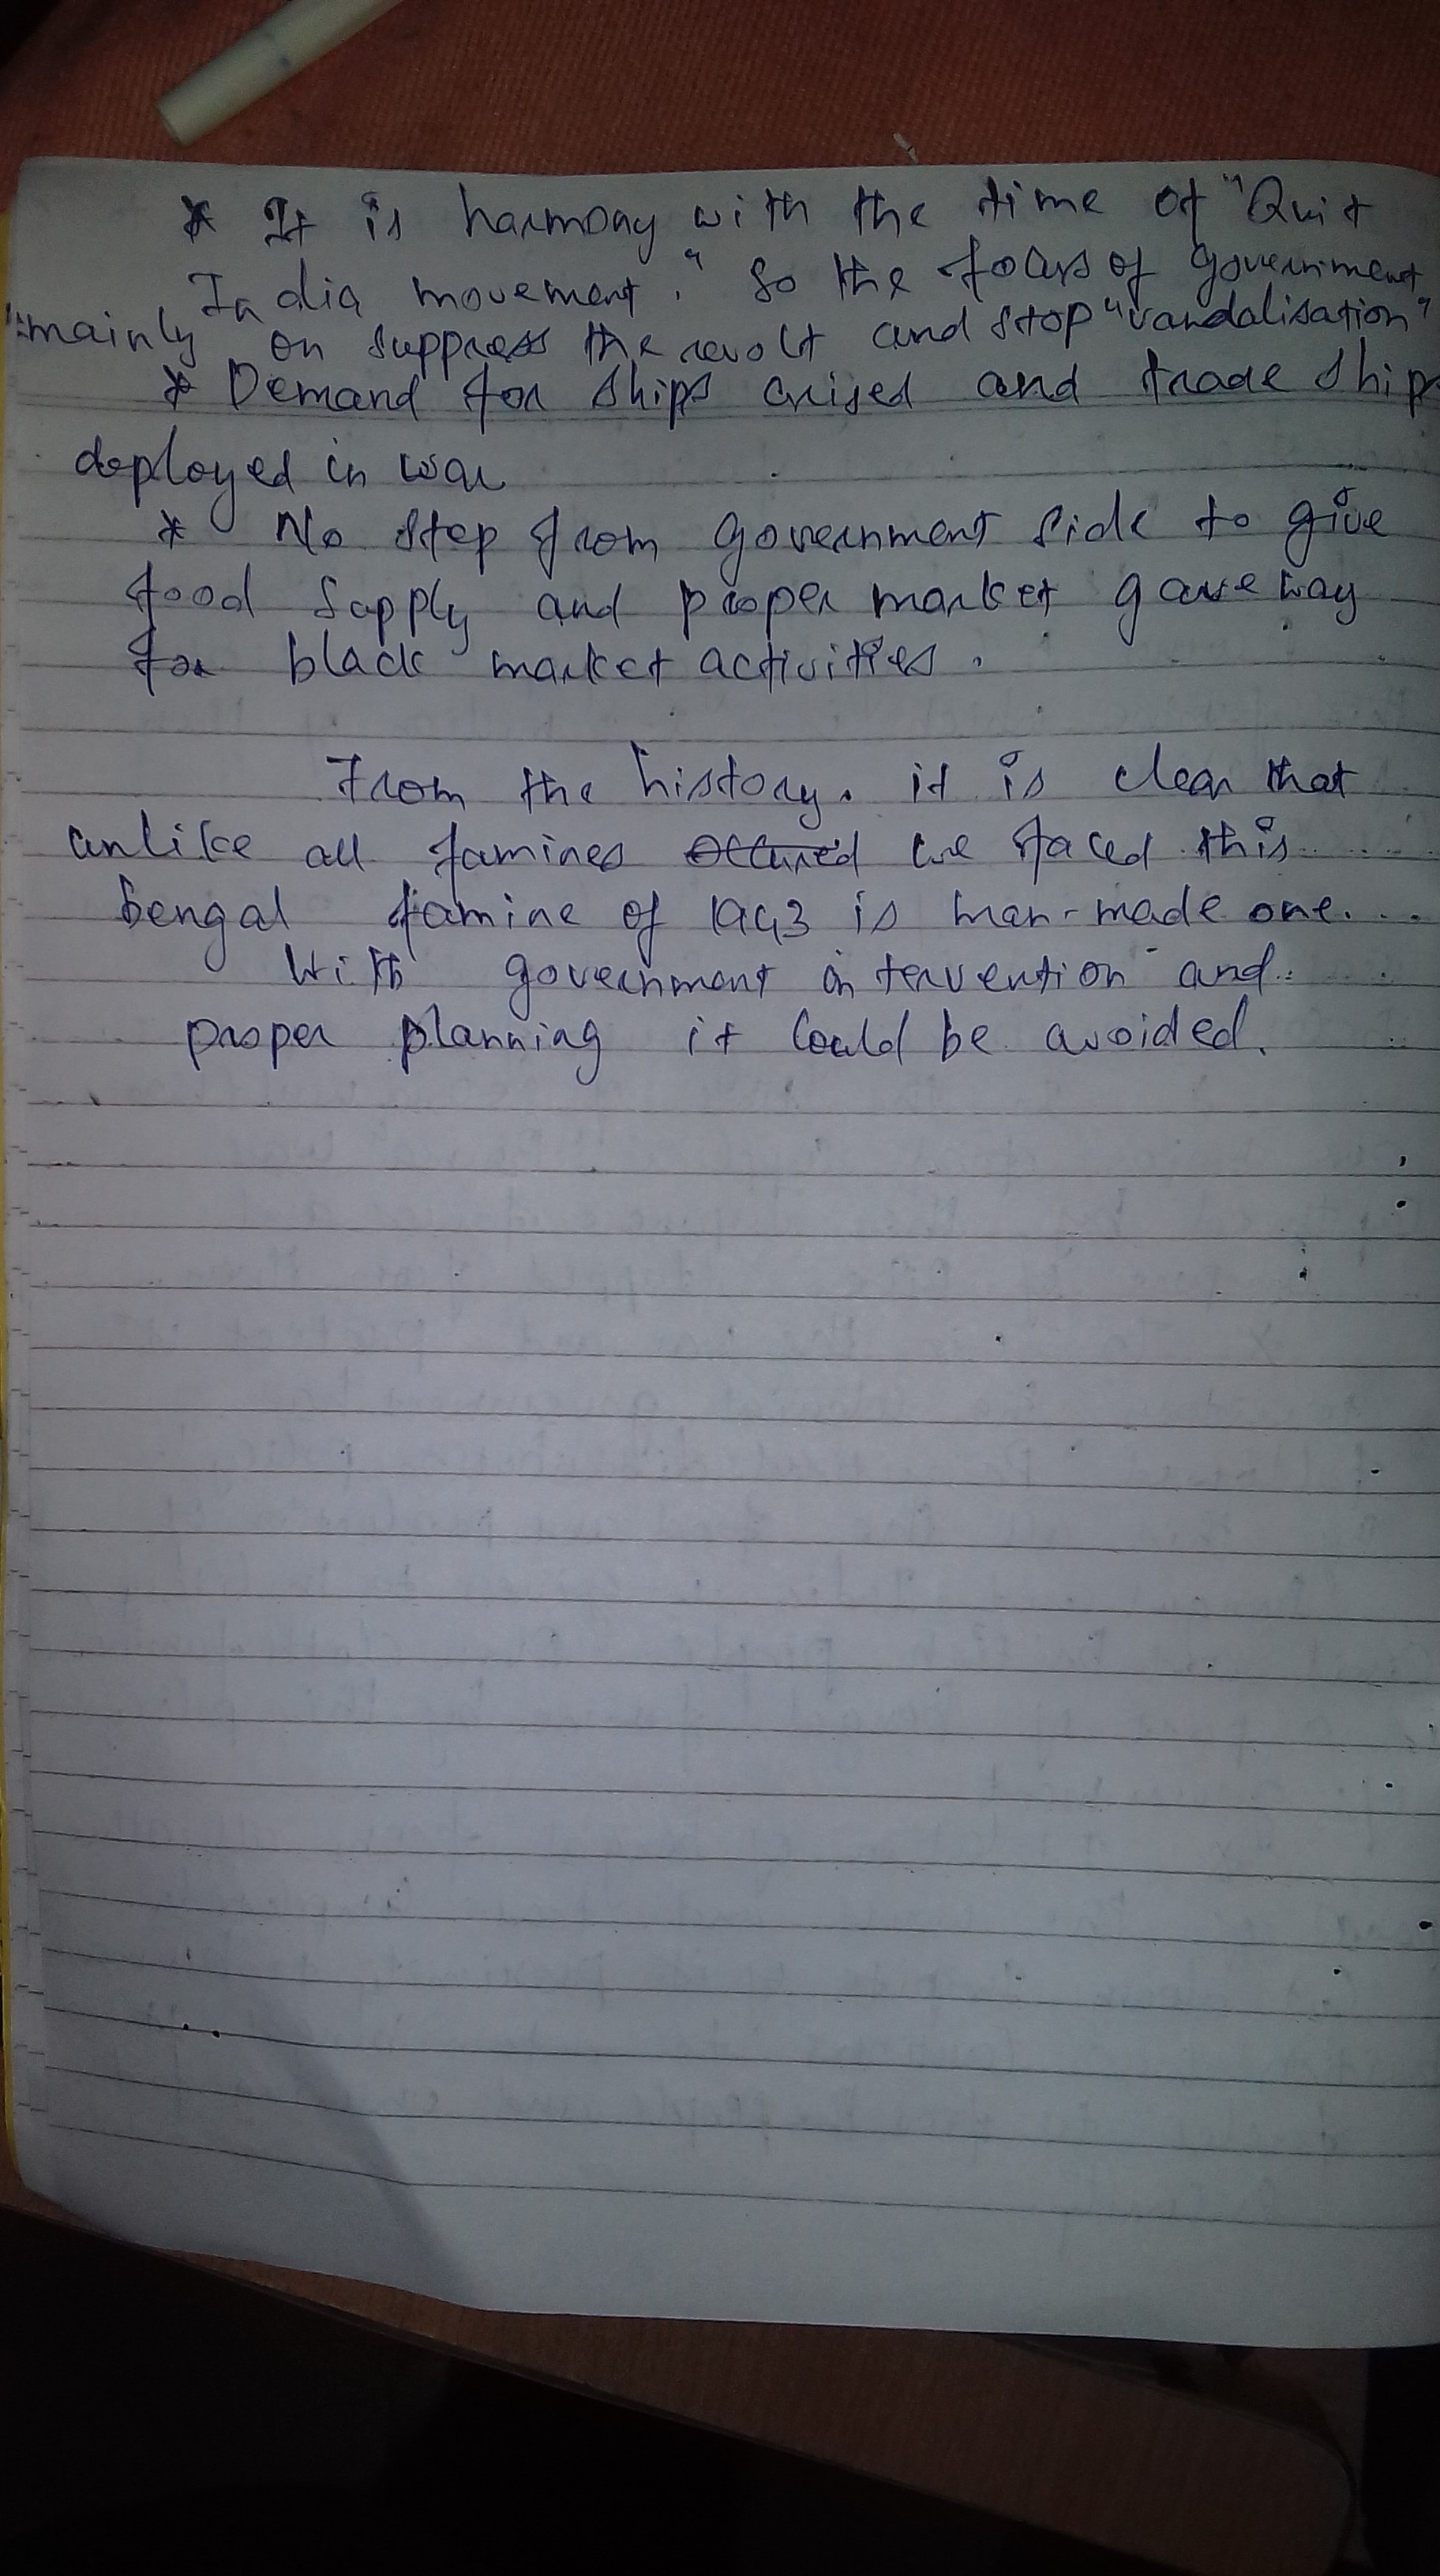 * It is harmony with the time of "Quit
India movement." So the focus of government
mainly on suppress the revolt and stop "vandalisation"
* Demand for ships arised and trade ship
deployed in war
* No step from government side to give
food supply and proper market gave way
for black market activities.
From the history. it is clear that
unlike all famines occured we faced this
bengal famine of 1943 is man-made one.
With government intervention and
proper planning it could be avoided.